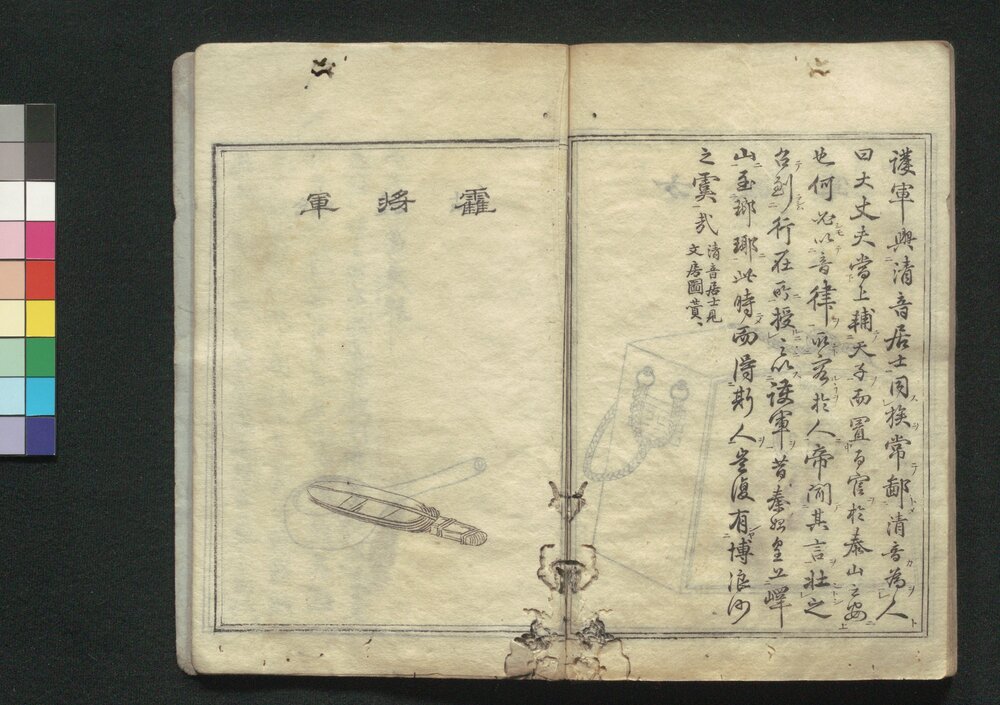 護軍與清音居士同族常鄙清音為人
曰大丈夫當上輔天子而置百官於泰山之安
也何必以音律取容於人帝聞其言壮之
召到行在所授之以護軍昔秦始皇上嶧
山至瑯瑯此時而得斯人豈復有博浪沙
之虞哉
清音居士見
文房圖賛
霍将軍